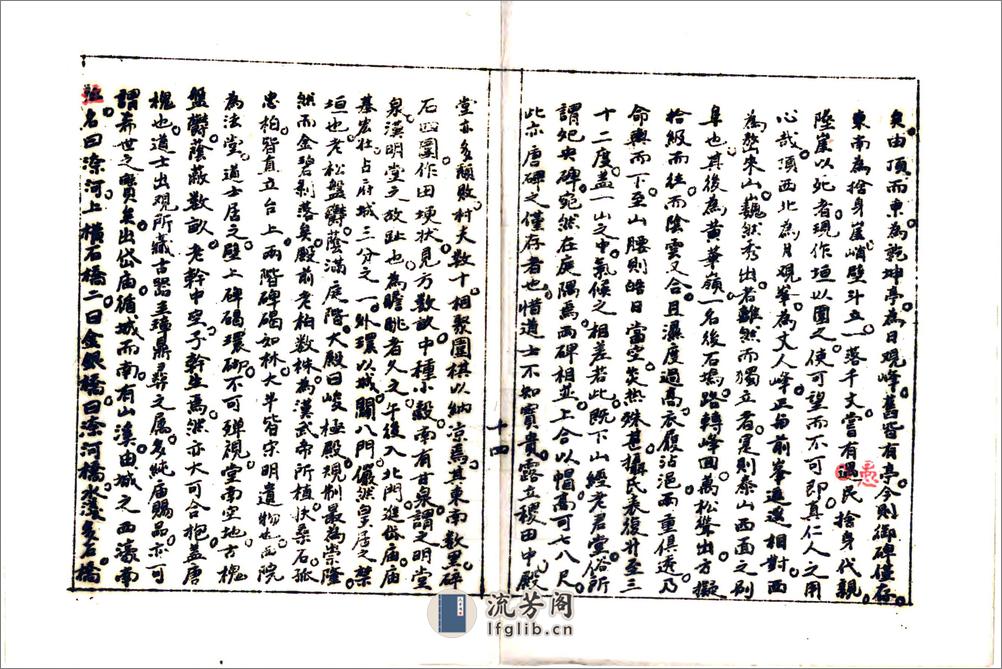 矣由頂而東為乾坤亭為日觀峰舊皆有亭今則御碑僅存
東南為捨身崖峭壁斗立一落千丈嘗有愚民捨身代親
陸崖以死者現作垣以圍之使可望而不可即真仁人之用
心哉頂西北為月觀峯為丈人峰正與前峯遙遙相對西
為嶅來山巍然秀出者雖然而獨立者是則泰山西面之別
阜也其後為黃華嶺一名後石塢路轉峰回萬松聳出方擬
拾級而往而陰雲又合且濕度過高衣履沾浥兩重俱透乃
命輿而下至山腰則皓日當空炎熱殊甚攝氏表復升至三
十二度蓋一山之中氣候之相差若此既下山經老君堂俗所
謂妃央碑宛然在庭隅焉兩碑相並上合以帽高可七八尺
此亦唐碑之僅存者也惜道士不知寶貴露立稷田中殿
十四
堂亦多頹敗村夫數十相聚圍棋以納涼焉其東南數里碎
石四圍作田埂狀見方數畝中種小穀南有甘泉謂之明堂
泉漢明堂之故趾也為瞻眺者久之午後入北門進岱庙庙
基宏壯占府城三分之一外環以城闢八門儼然皇居之禁
垣也老松盤鬱蔭滿庭階大殿曰峻極殿規制最為崇隆
然而金碧剝落矣殿前老柏數株為漢武帝所植扶桑石孤
忠柏皆直立台上兩階碑碣如林大半皆宋明遺物也西院
為法堂道士居之壁上碑碣環砌不可殫視堂南空地古槐
盤鬱蔭蔽數畝老幹中空子幹生焉然亦大可合抱蓋唐
槐也道士出觀所藏古器圭璋鼎彝之属多純庙賜品亦可
謂希世之寶矣出岱庙循城而南有山溪由城之西濠南
名曰渿河上橫石橋二曰金銀橋曰渿河橋水淺多石橋
流芳阁
lfglib.cn